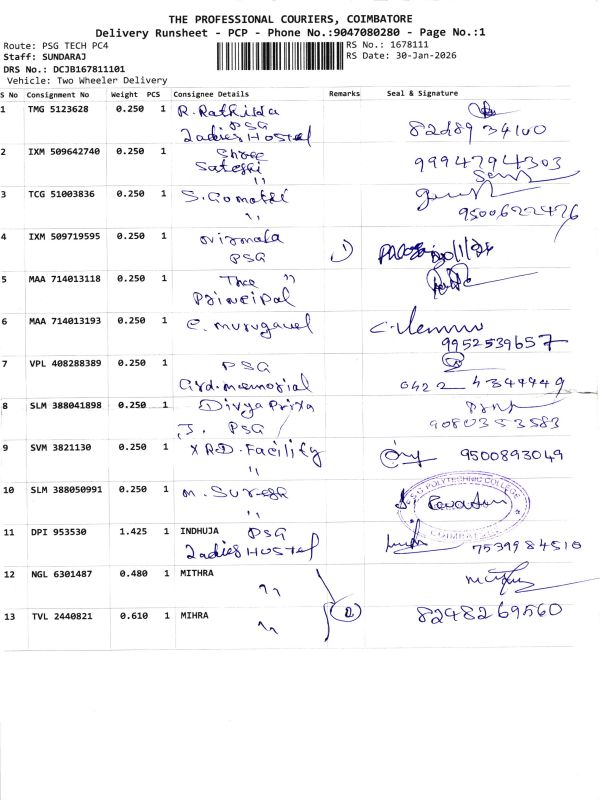 THE PROFESSIONAL COURIERS, COIMBATORE
Delivery Runsheet - PCP - Phone No.:9047080280 - Page No.:1
Route: PSG TECH PC4 RS No.: 1678111
Staff: SUNDARAJ RS Date: 30-Jan-2026
DRS No.: DCJB167811101
Vehicle: Two Wheeler Delivery
S No Consignment No Weight PCS Consignee Details Remarks Seal & Signature
1 TMG 5123628 0.250 1 R. Rathikha
PSG
Ladies HOSTEL
2 IXM 509642740 0.250 1 Shree
Sateshi 9994794303
"
3 TCG 51003836 0.250 1 S. Gomathi
" 9500622476
4 IXM 509719595 0.250 1
PSG 1)
5 MAA 714013118 0.250 1 The "
Principal
6 MAA 714013193 0.250 1 C. Murugavel
9952539657
7 VPL 408288389 0.250 1 PSG
Grd. Memorial 0422 4344449
8 SLM 388041898 0.250 1 Divya Priya
J. PSG 9080353583
9 SVM 3821130 0.250 1 XRD. Facility 9500893049
"
10 SLM 388050991 0.250 1 M. Suresh
" POLYTECHNIC COLLEGE
COIMBATORE
11 DPI 953530 1.425 1 INDHUJA PSG
Ladies HOSTEL 7539984510
12 NGL 6301487 0.480 1 MITHRA
"
13 TVL 2440821 0.610 1 MIHRA 2 8248269560
"